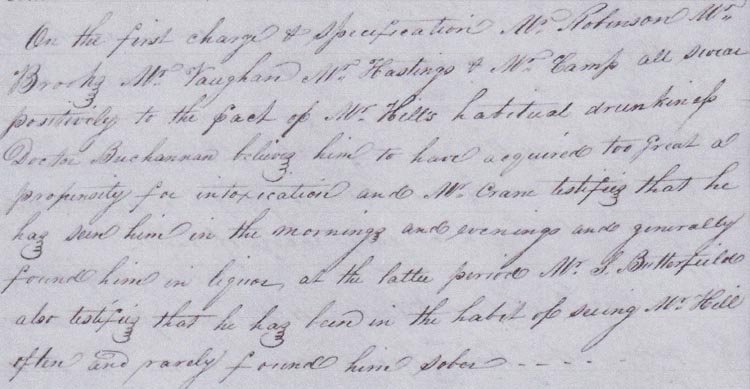 On the first charge & specification Mr. Robinson Mr.
Brooks Mr. Vaughan Mr. Hastings & Mr. Camp all swear
positively to the fact of Mr. Hill's habitual drunkiness
Doctor Buchannan believes him to have acquired too great a
propensity for intoxication and Mr. Crane testifies that he
has seen him in the mornings and evenings and generally
found him in liquor, at the latter period Mr. S. Butterfield
also testifies that he has been in the habit of seeing Mr. Hill
often and rarely found him sober - - - - -